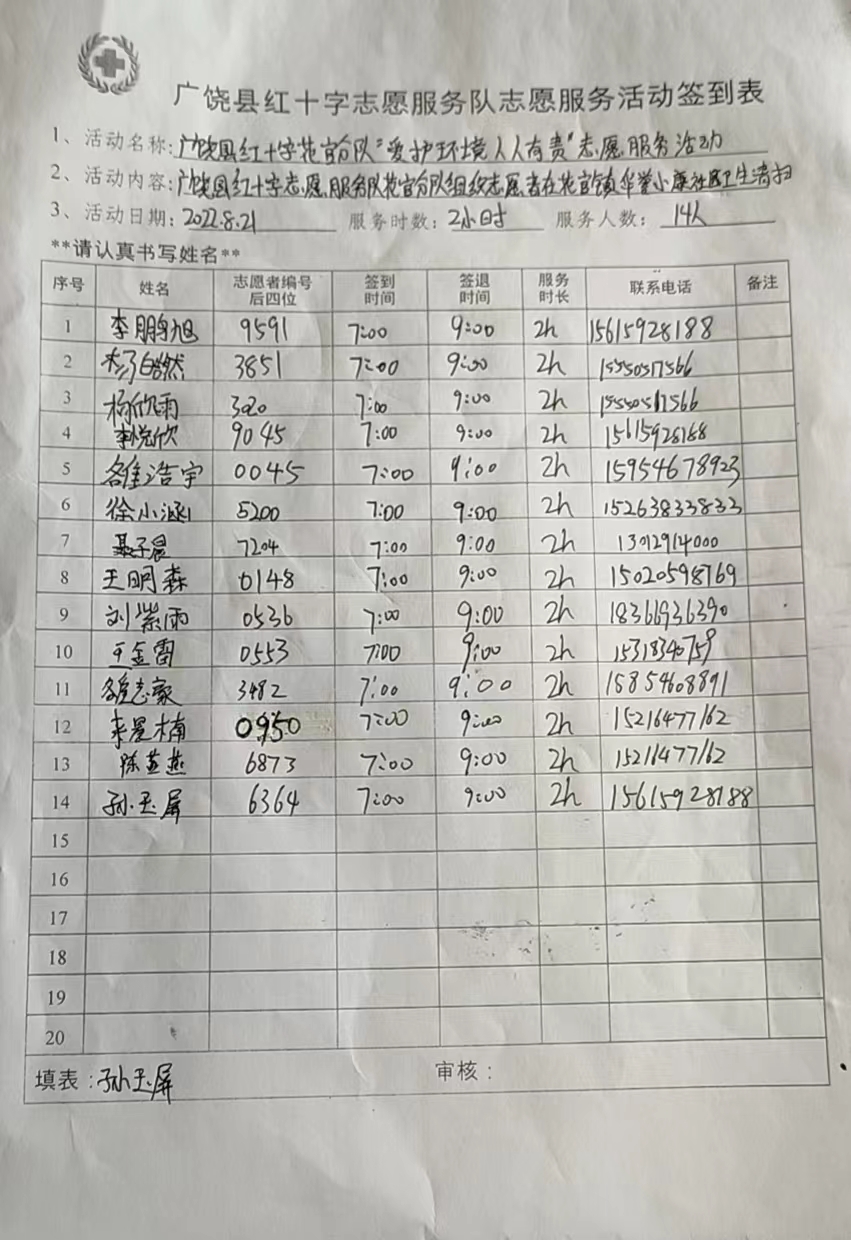 广饶县红十字志愿服务队志愿服务活动签到表
1、活动名称:广饶县红十字花官分队“爱护环境人人有责”志愿服务活动
2、活动内容:广饶县红十字志愿服务队花官分队组织志愿者在花官镇华誉小康社区卫生清扫
3、活动日期:2022.8.21 服务时数:2小时 服务人数:14人
**请认真书写姓名**
序号 姓名 志愿者编号后四位 签到时间 签退时间 服务时长 联系电话 备注
1 李鹏旭 9591 7:00 9:00 2h 15615928188
2 3851 7:00 9:00 2h 15550517566
3 杨欣雨 3020 7:00 9:00 2h 15550517566
4 李悦欣 9045 7:00 9:00 2h 15615928188
5 浩宇 0045 7:00 9:00 2h 15954678923
6 徐小涵 5200 7:00 9:00 2h 15263833833
7 聂子晨 7204 7:00 9:00 2h 13012914000
8 王明森 0148 7:00 9:00 2h 15020598769
9 刘紫雨 0536 7:00 9:00 2h 18366936390
10 王金雷 0553 7:00 9:00 2h 15318340759
11 志豪 3482 7:00 9:00 2h 15854608891
12 李昱楠 0950 7:00 9:00 2h 15216477162
13 陈英燕 6873 7:00 9:00 2h 15216477162
14 孙玉屏 6364 7:00 9:00 2h 15615928188
15
16
17
18
19
20
填表:孙玉屏 审核: